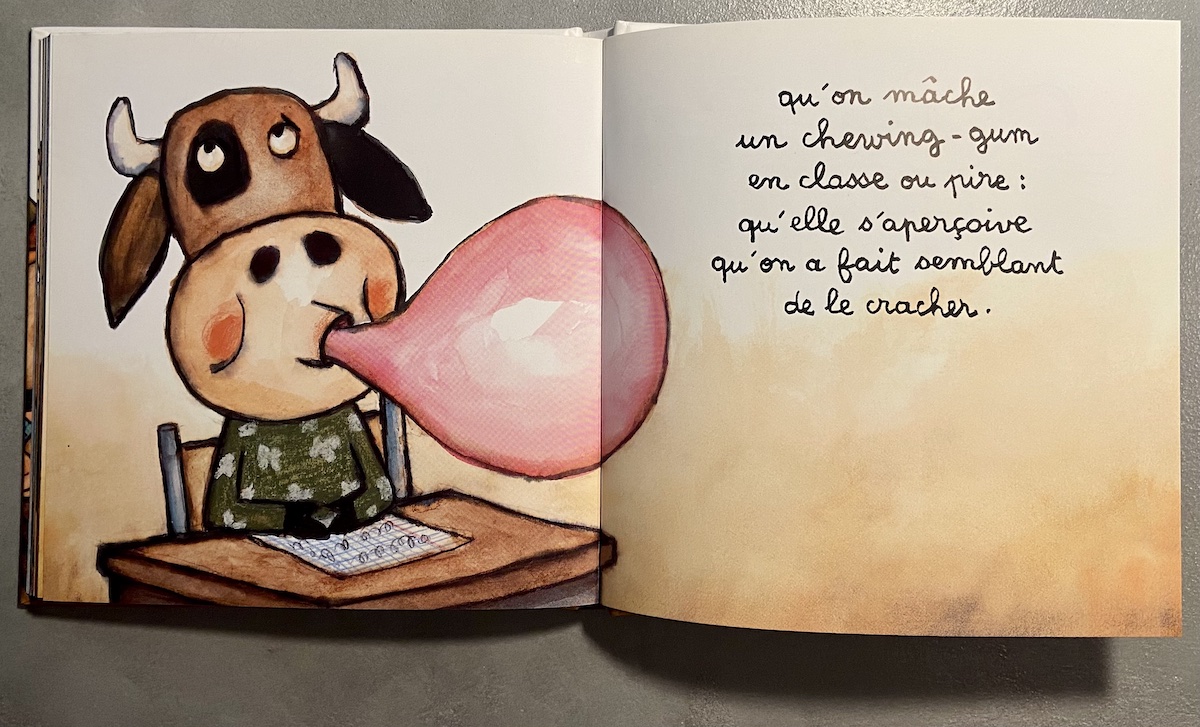 qu'on mâche
un chewing-gum
en classe ou pire :
qu'elle s'aperçoive
qu'on a fait semblant
de le cracher.